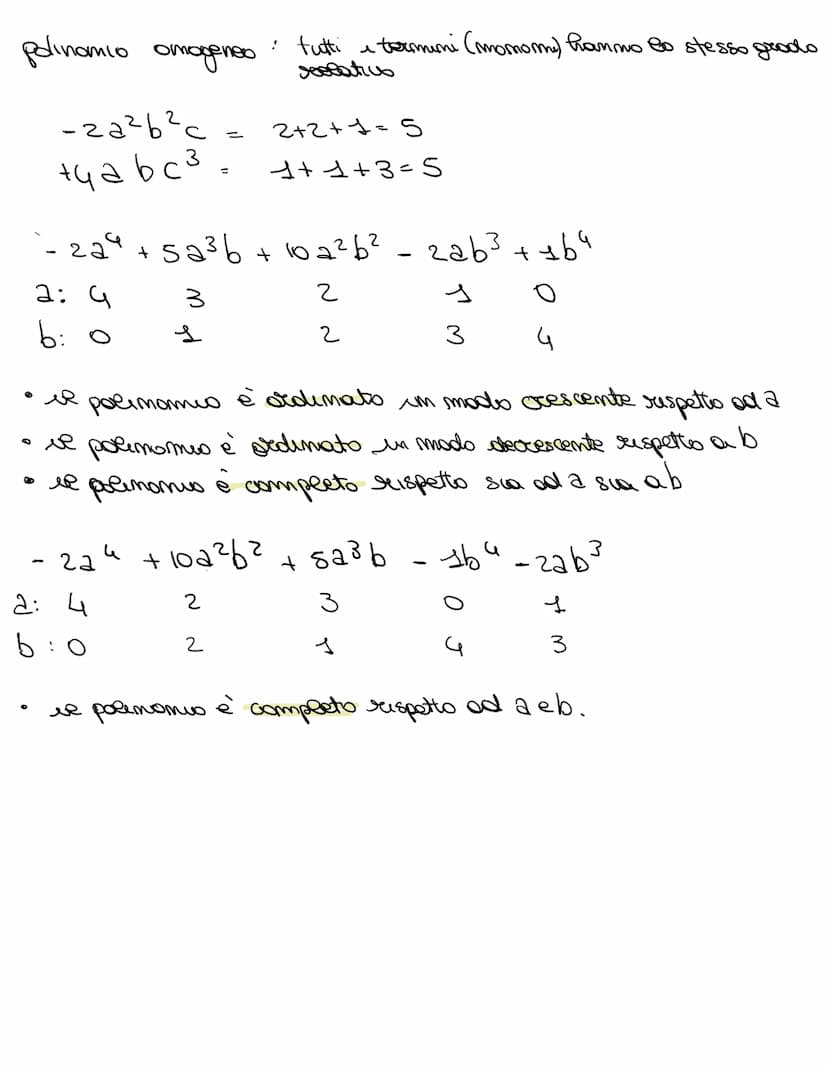 polinomio omogeneo : tutti i termini (monomi) hanno lo stesso grado
-2a²b²c = 2+2+1= 5
+4abc³ = 1+1+3=5
- 2a⁴ + 5a³b + 10a²b² - 2ab³ + 1b⁴
a: 4 3 2 1 0
b: 0 1 2 3 4
• il polinomio è ordinato in modo crescente rispetto ad a
• il polinomio è ordinato in modo decrescente rispetto a b
• il polinomio è completo rispetto sia ad a sia a b
- 2a⁴ + 10a²b² + 5a³b - 1b⁴ - 2ab³
a: 4 2 3 0 1
b: 0 2 1 4 3
• il polinomio è completo rispetto ad a e b.